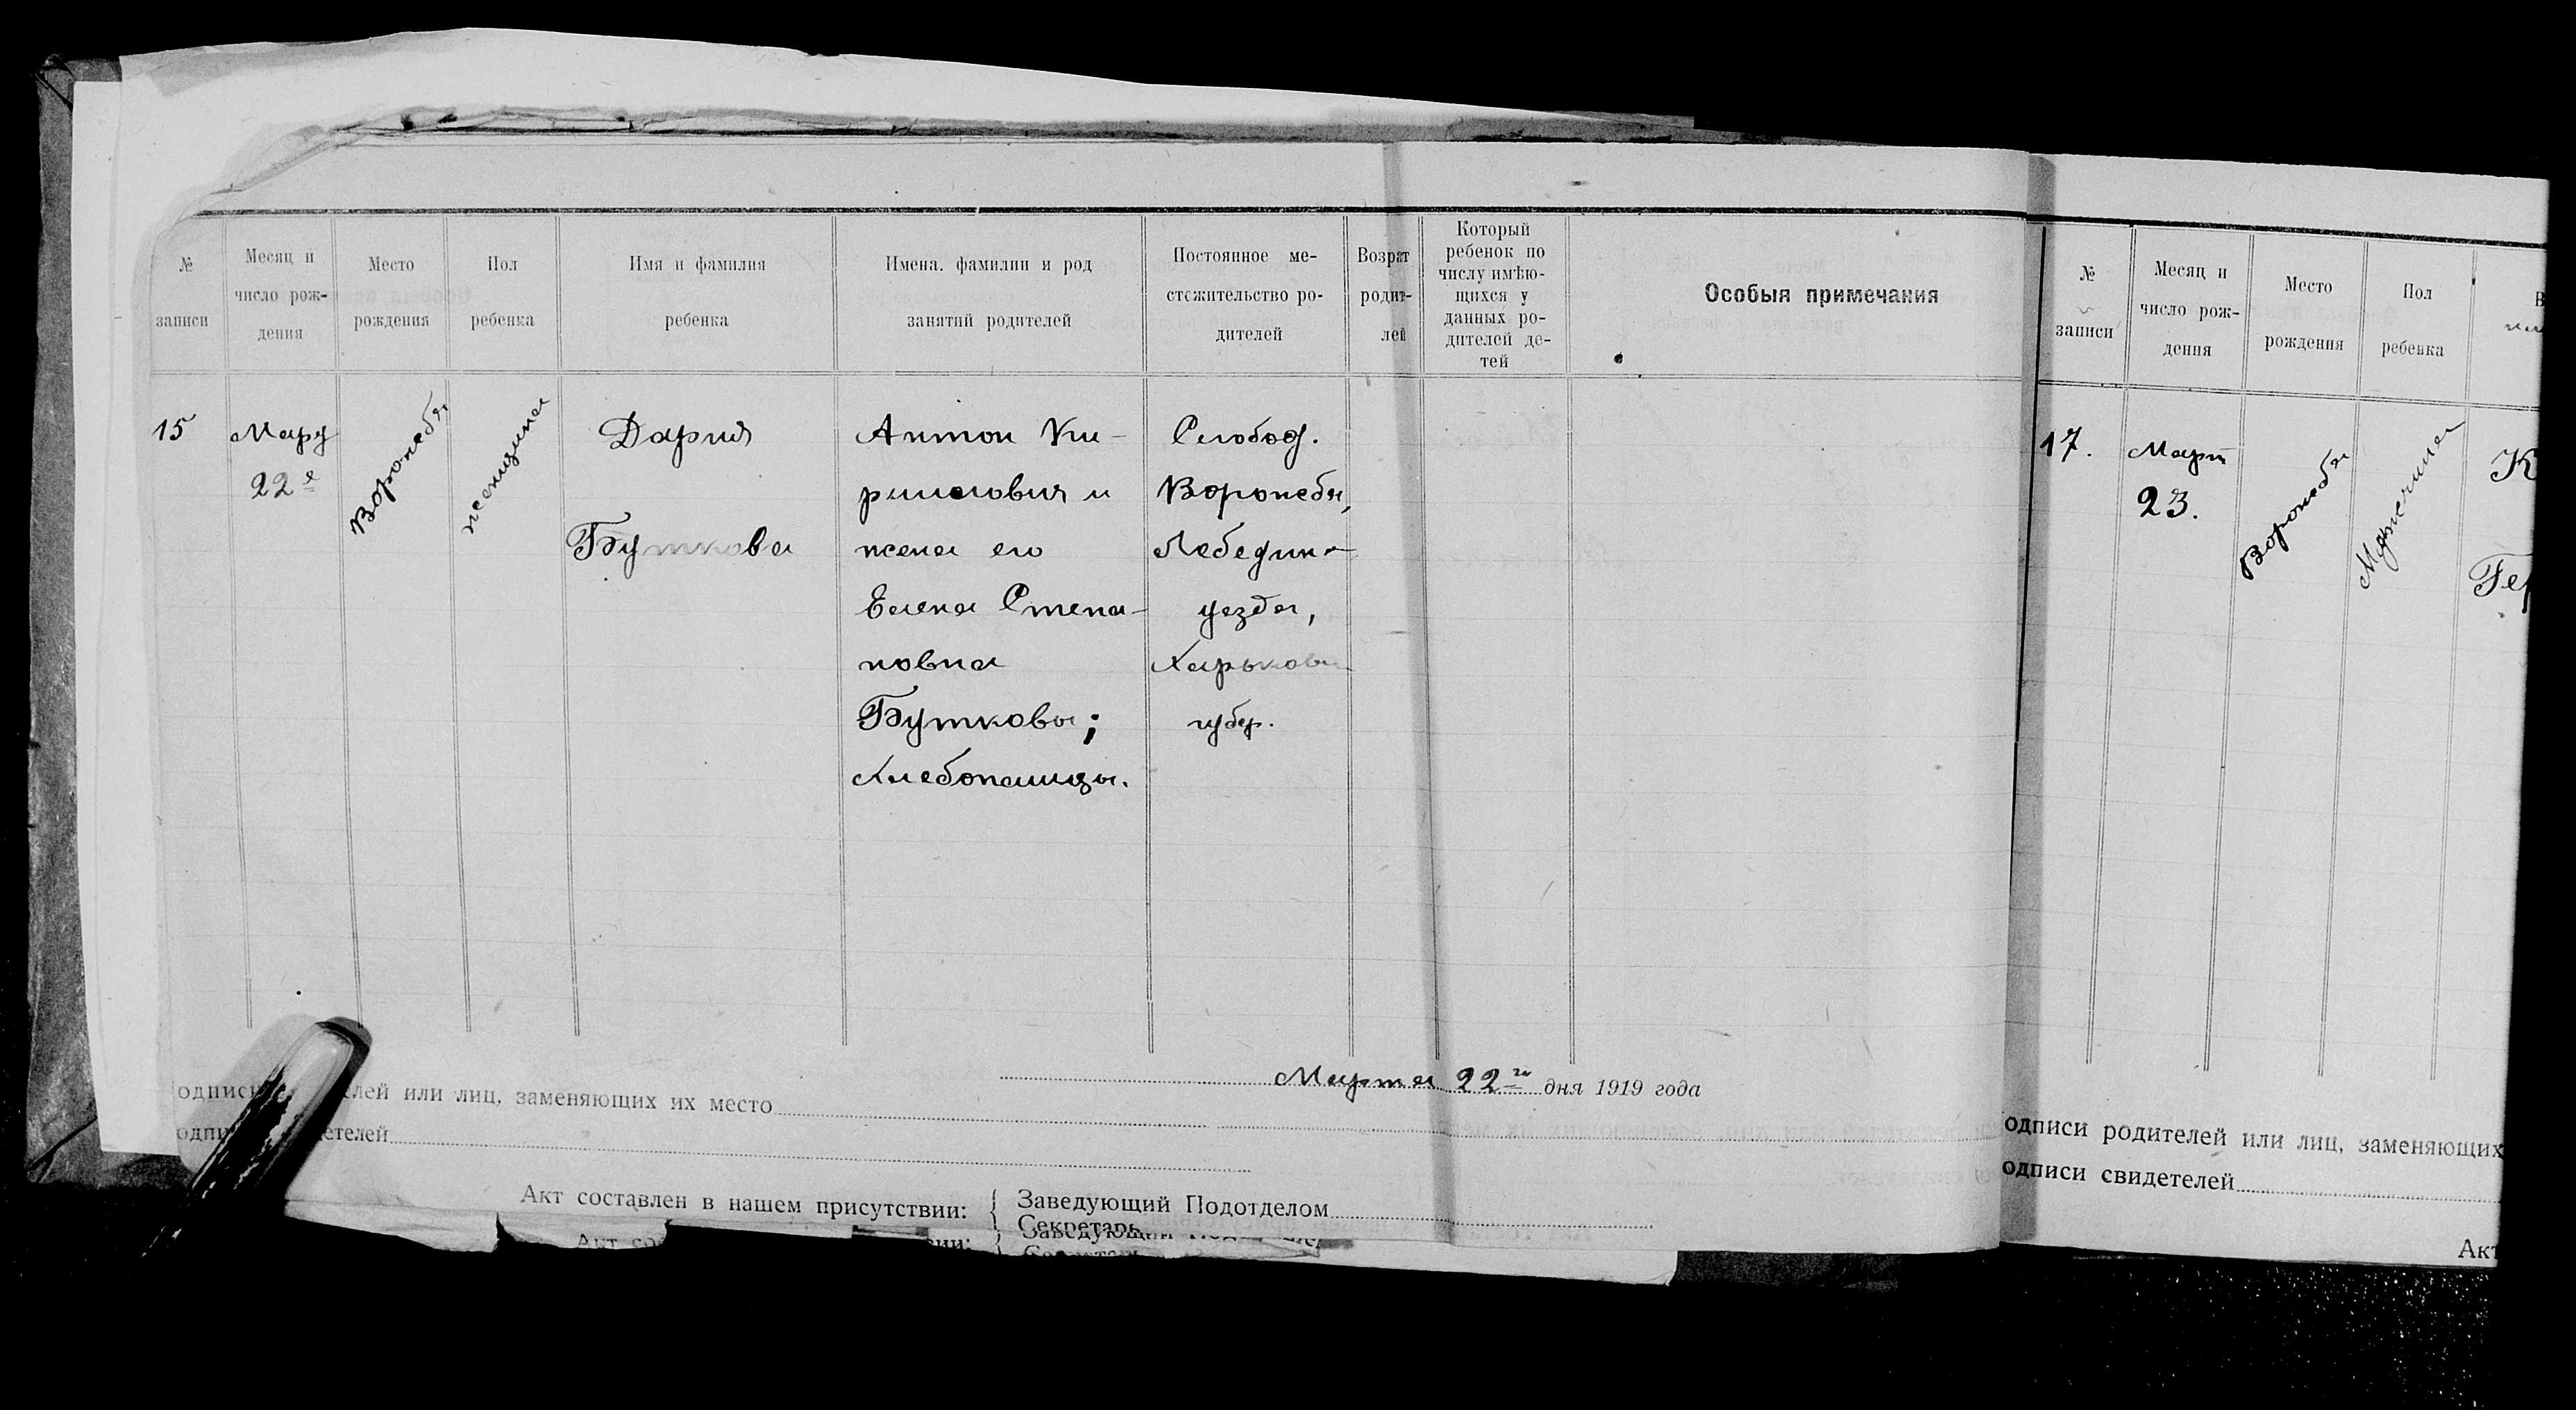 № записи
Месяц и число рож-дения
Место рождения
Пол ребенка
Имя и фамилия ребенка
Имена. фамилии и род занятий родителей
Постоянное ме-стожительство ро-дителей
Возраст родит-лей
Который ребенок по числу имѣю-щихся у данных ро-дителей де-тей
Особыя примечания
15
Март
22е
Воронеба
женщина
Дария
Буткова
Антон Ки-
риллович и
жена его
Елена Степа-
новна
Бутковы;
Хлебопашцы.
Слобод.
Воронеба,
Лебедин-
уезда,
Харьков
губер.
Марта 22го дня 1919 года
одписи лей или лиц, заменяющих их место
одпи етелей
Акт составлен в нашем присутствии: { Заведующий Подотделом
Секретарь
№ записи
Месяц и число рож-дения
Место рождения
Пол ребенка
17.
Март
23.
Воронеба
Мужчина
К
Гер
одписи родителей или лиц, заменяющих
одписи свидетелей
Акт